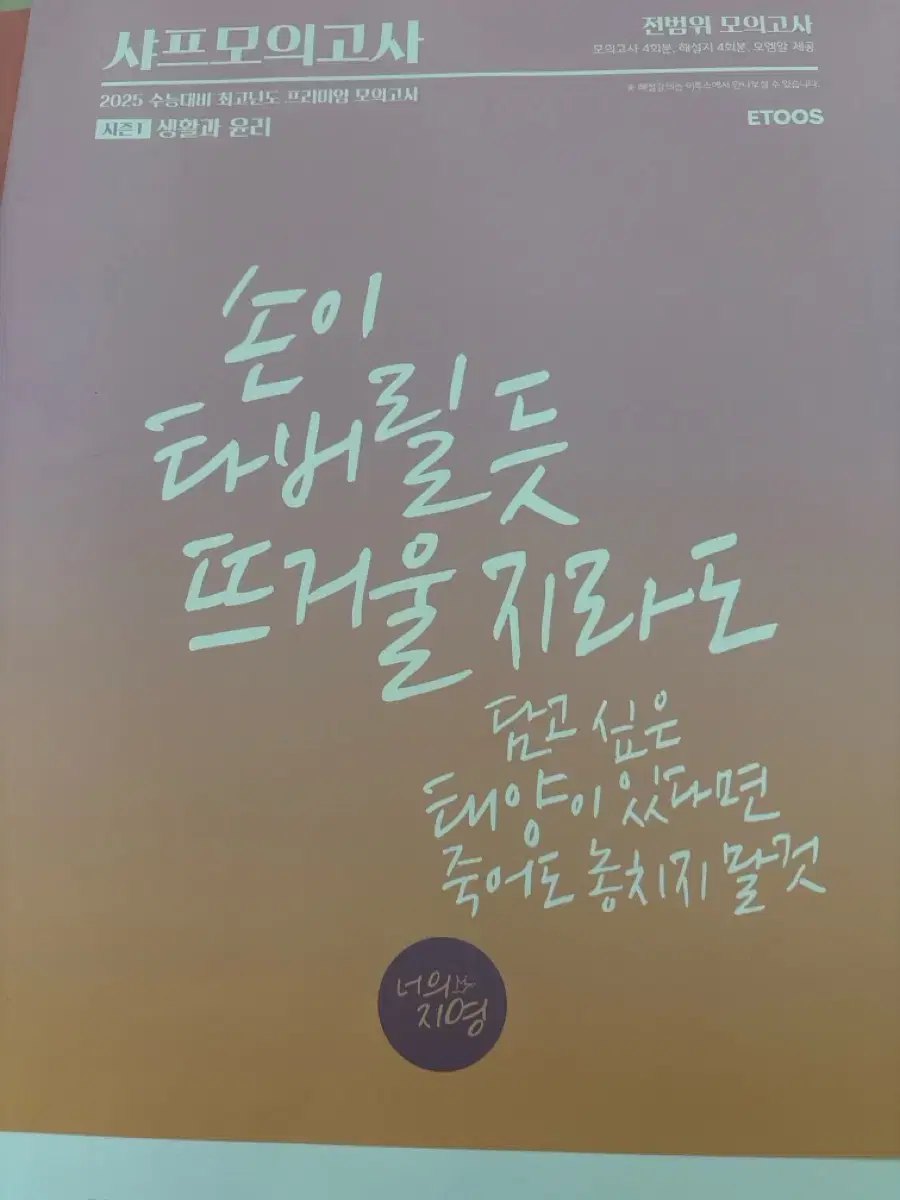 샤프모의고사
전범위 모의고사
모의고사 4회분, 해설지 4회분, 오엠알 제공
2025 수능대비 최고난도 프리미엄 모의고사
※ 해설강의는 이투스에서 만나보실 수 있습니다.
시즌1 생활과 윤리
ETOOS
손이
타버릴 듯
뜨거울지라도
담고 싶은
태양이 있다면
죽어도 놓치지 말 것
너의
지영